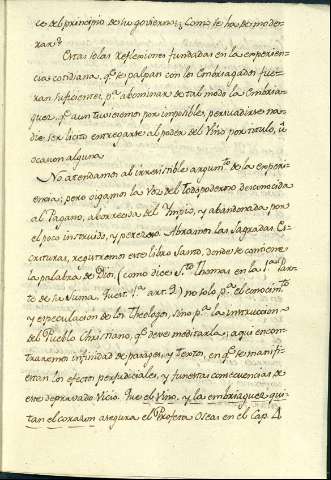 ce del principio de su govierno; ¿Como se ha de mode-
rar?
Estas solas reflexiones fundadas en la experien-
cia cotidiana, qe. se palpan con los Embriagados fue-
ran suficientes pa. abominar de tal modo la Embria-
guez, qe. aun tuviesemos por imposible, persuadirse na-
die ser licito entregarse al poder del Vino por titulo, û
ocasion alguna.
No atendamos al irresistible argumto. de la experi-
encia; pero oigamos la Voz del todopoderoso desconocida
al Pagano, aborrecida del Ympio, y abandonada por
el poco instruido, y perezoso. Abramos las Sagradas Es-
crituras, registremos este libro Santo, donde se contiene
la palabra de Dios, (como dice Sto. Thomas en la 1a. Par-
te de su Suma, Quest. 1a. art. 2) no solo pa. el conocimto.
y especulación de los Theologos, sino pa. la instruccion
del Pueblo Christiano, qe. deve meditarla; aqui encon-
traremos infinidad de parages, y textos, en qe. se manifi-
estan los efectos perjudiciales, y funestas consecuencias de
este depravado Vicio. Que el Vino, y la embriaguez qui-
tan el corazon asegura el Profeta Oseas en el Cap. 4